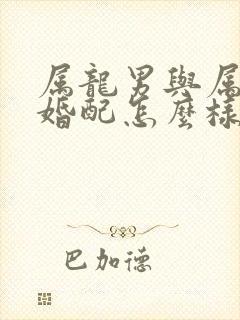 属龍男與属
婚配怎麼樣
巴加德